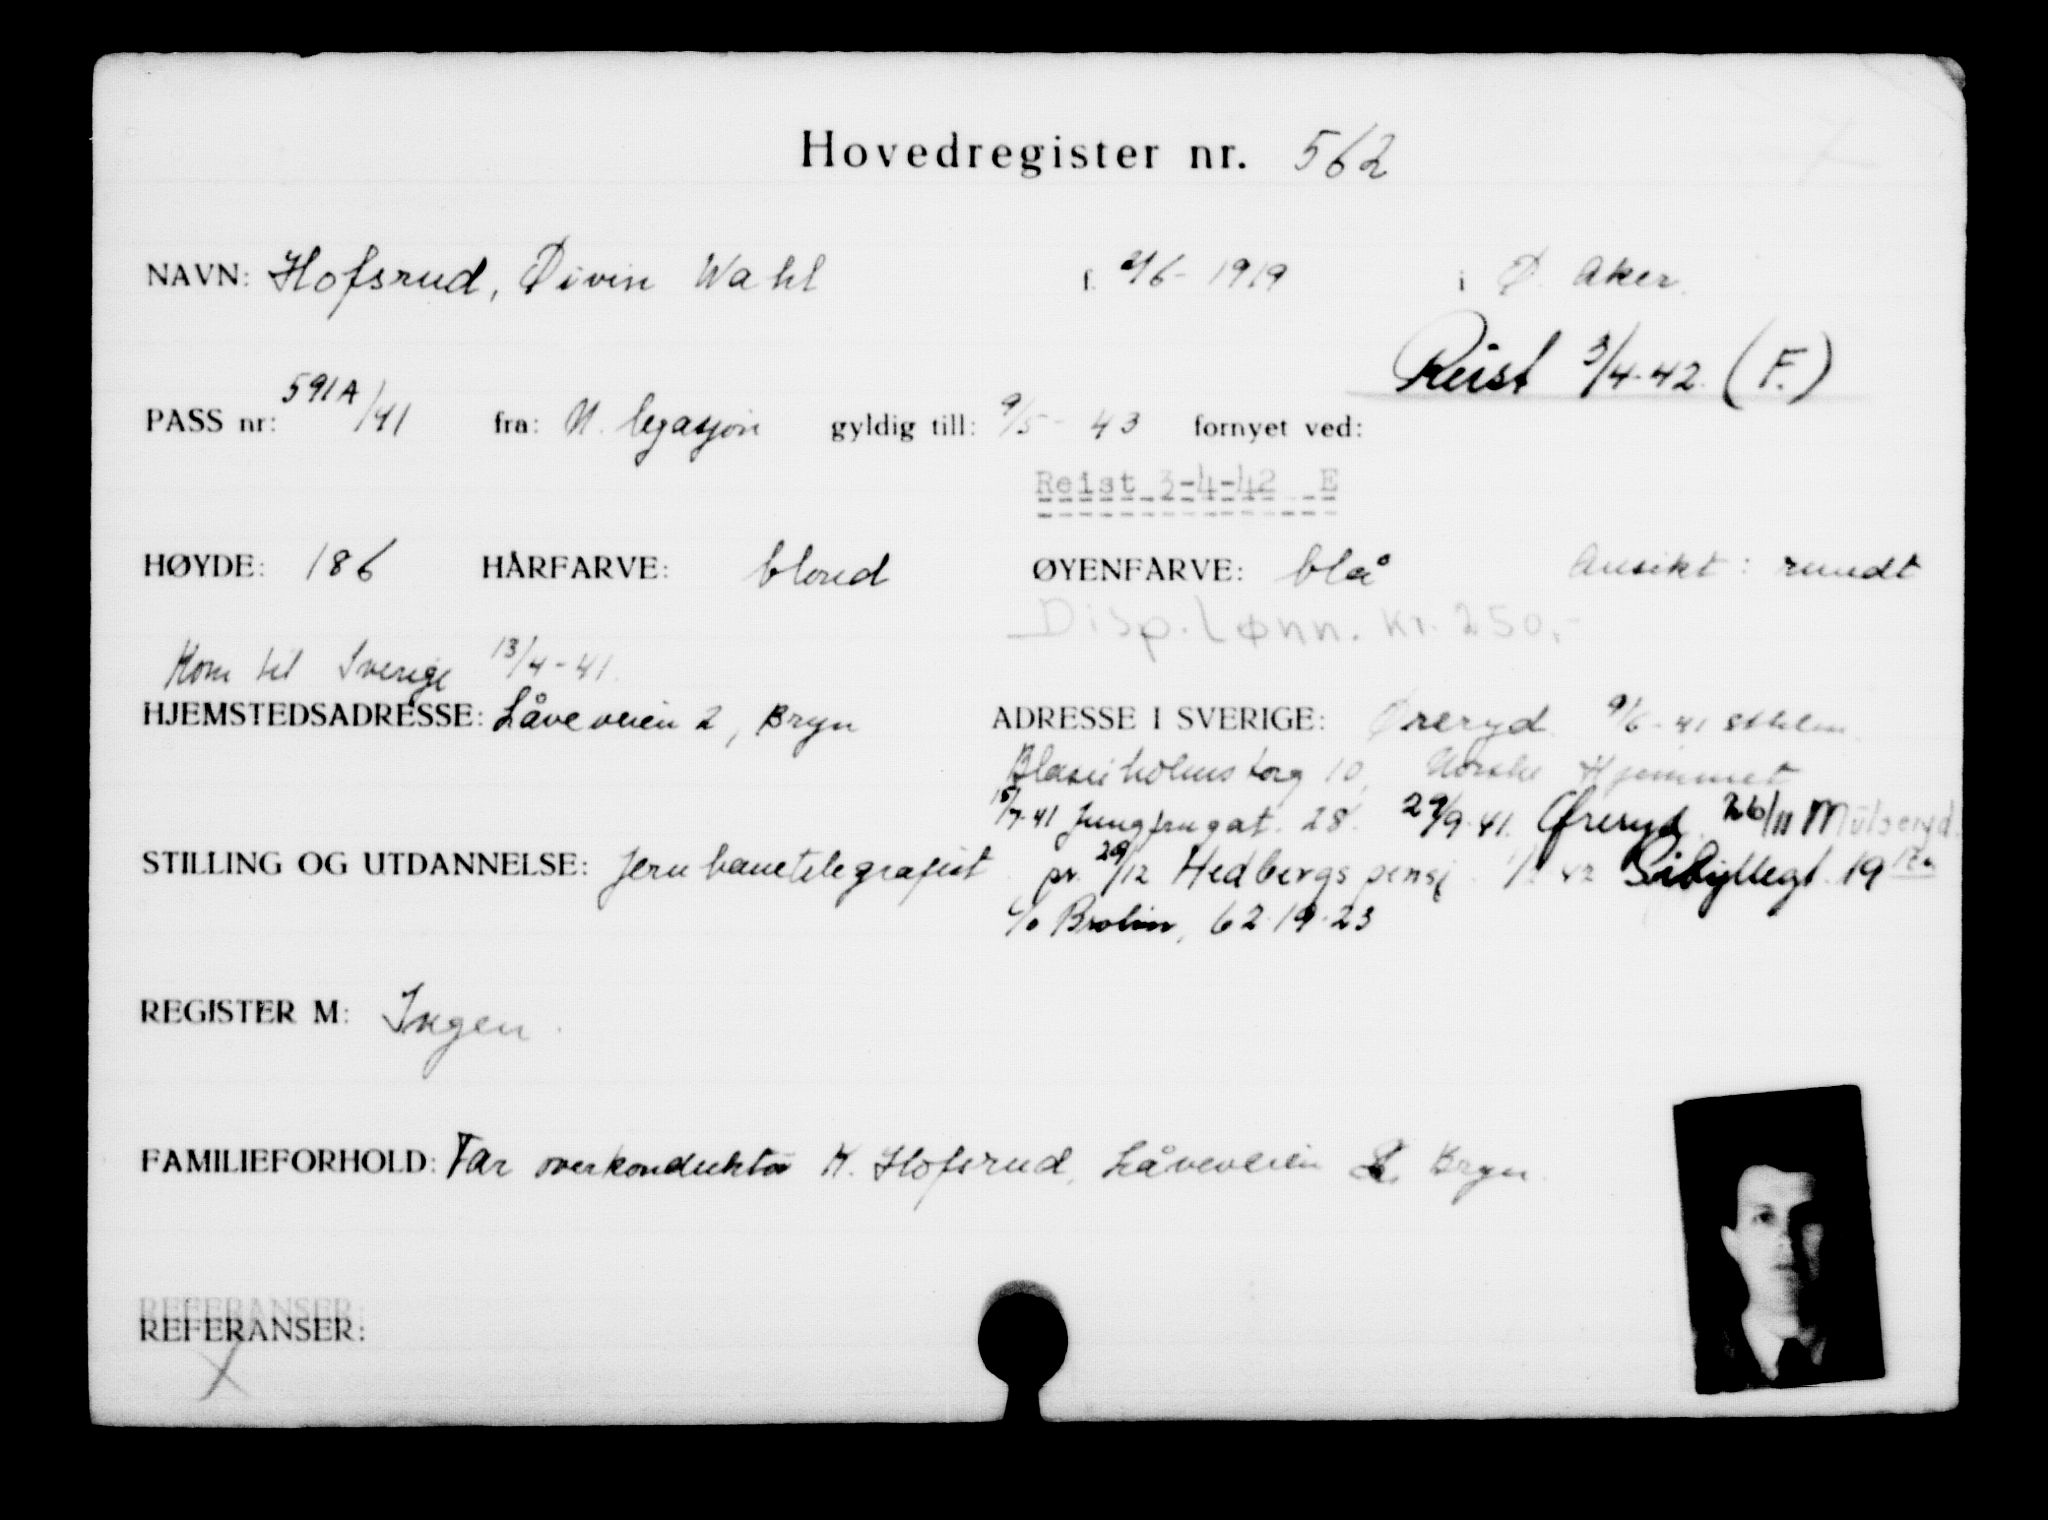 Hovedregister nr. 562
NAVN: Hofsrud, Øivin Wahl f. 2/6-1919 i Ø. Aker.
Reist 3/4-42. (F.)
PASS nr: 591A/41 fra: N. legasjon gyldig till: 9/5-43 fornyet ved:
Reist 3-4-42 E
HØYDE: 186 HÅRFARVE: blond ØYENFARVE: blå Ansikt: rundt
Disp. Lønn. kr. 250,-
Kom til Sverige 13/4-41.
HJEMSTEDSADRESSE: Låveveien 2, Bryn ADRESSE I SVERIGE: Øreryd 9/6-41 Sthlm.
Blasieholmstorg 10, Norske Hjemmet
15/7-41 Jungfrugat. 28. 29/9-41. Øreryd. 26/11 Mülseryd.
STILLING OG UTDANNELSE: Jernbanetelegrafist pr. 29/12 Hedbergs pensj. 42 Sibyllegt. 19
c/o Brolin, 62.19.23
REGISTER M: Ingen.
FAMILIEFORHOLD: Far overkonduktør K. Hofsrud, Låveveien 2, Bryn.
REFERANSER:
REFERANSER:
X